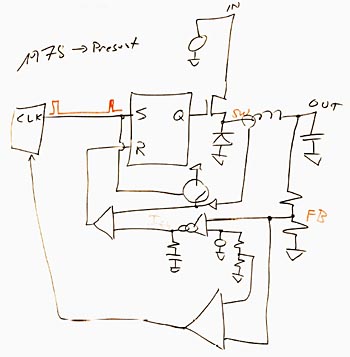 IN
1975 → Present
OUT
CLK
S
Q
SW
R
FB